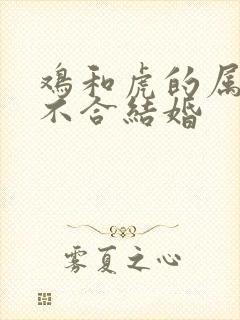 鸡和虎的属
不合結婚
雾夏之心